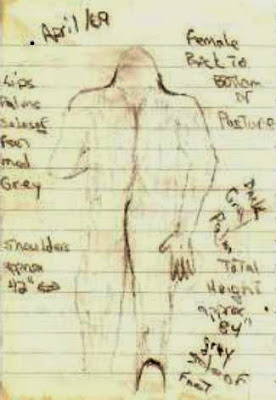 April/69
Female
Back To
Bottom
of
Pasture
Lips
Palms
Soles of
Feet
med
Grey
Shoulders
approx
42"
Dark
Grey
Palm
Total
Height
approx
84"
grey
Foot